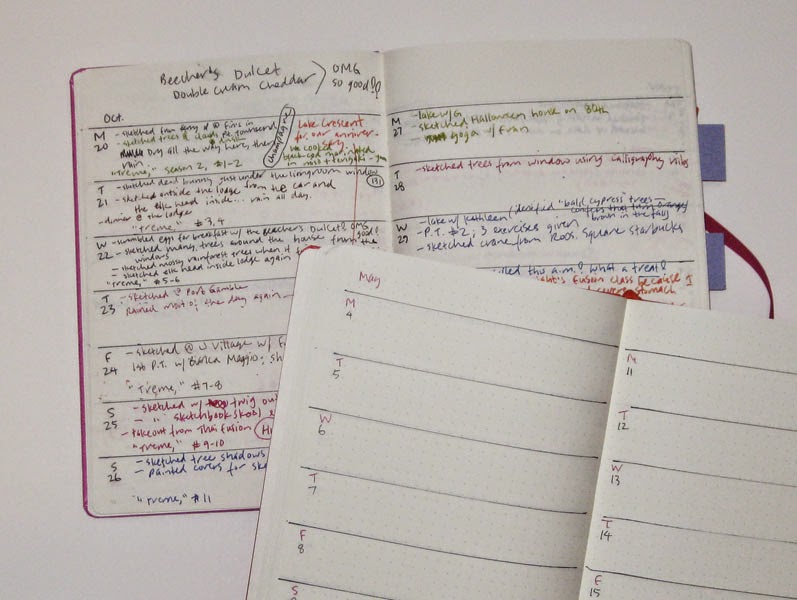 Beecher's Dulcet
Double Cream Cheddar
OMG
so good!!
Oct.
M
20
- sketched from ferry & @ firs in
- sketched trees &
Dug all the way here, then
rain
"Treme," season 2, #1-2
Lake Crescent
for our anniver-
sary.
We cooked
in miso + teriyaki - yum
T
21
- sketched dead bunny just under the livingroom window
- sketched outside the lodge from the car and
the elk head inside... rain all day.
- dinner @ the lodge
"Treme," #3,4
W
22
- scrambled eggs for breakfast w/ the Beecher's Dulcet! OMG good!
- sketched many trees around the house from the
windows
- sketched mossy rainforest trees when it
- sketched elk head inside lodge again
"Treme," #5-6
T
23
- sketched @ Port Gamble
Rained most of the day again
F
24
- sketched @ U Village w/
1st P.T. w/ Bianca Maggio; sh
"Treme," #7-8
S
25
- sketched w/ twig out
- " sketchbook skool
- takeout from Thai Fusion
"Treme," #9-10
S
26
- sketched tree shadows
- painted covers for ske
"Treme," #11
M
27
- lake w/G
- sketched Halloween house on 80th
yoga w/ Fran
T
28
- sketched trees from window using calligraphy nibs
W
29
- lake w/ Kathleen / identified "bald cypress" trees -
conifers that turn orange/
brown in the fall)
- P.T. #2; 3 exercises given
- sketched crane from Roos. Square Starbucks
this a.m.! What a treat!
night's fusion class because I
severe stomach
May
M
4
T
5
W
6
T
7
F
8
S
M
11
T
12
W
13
T
14
F
15